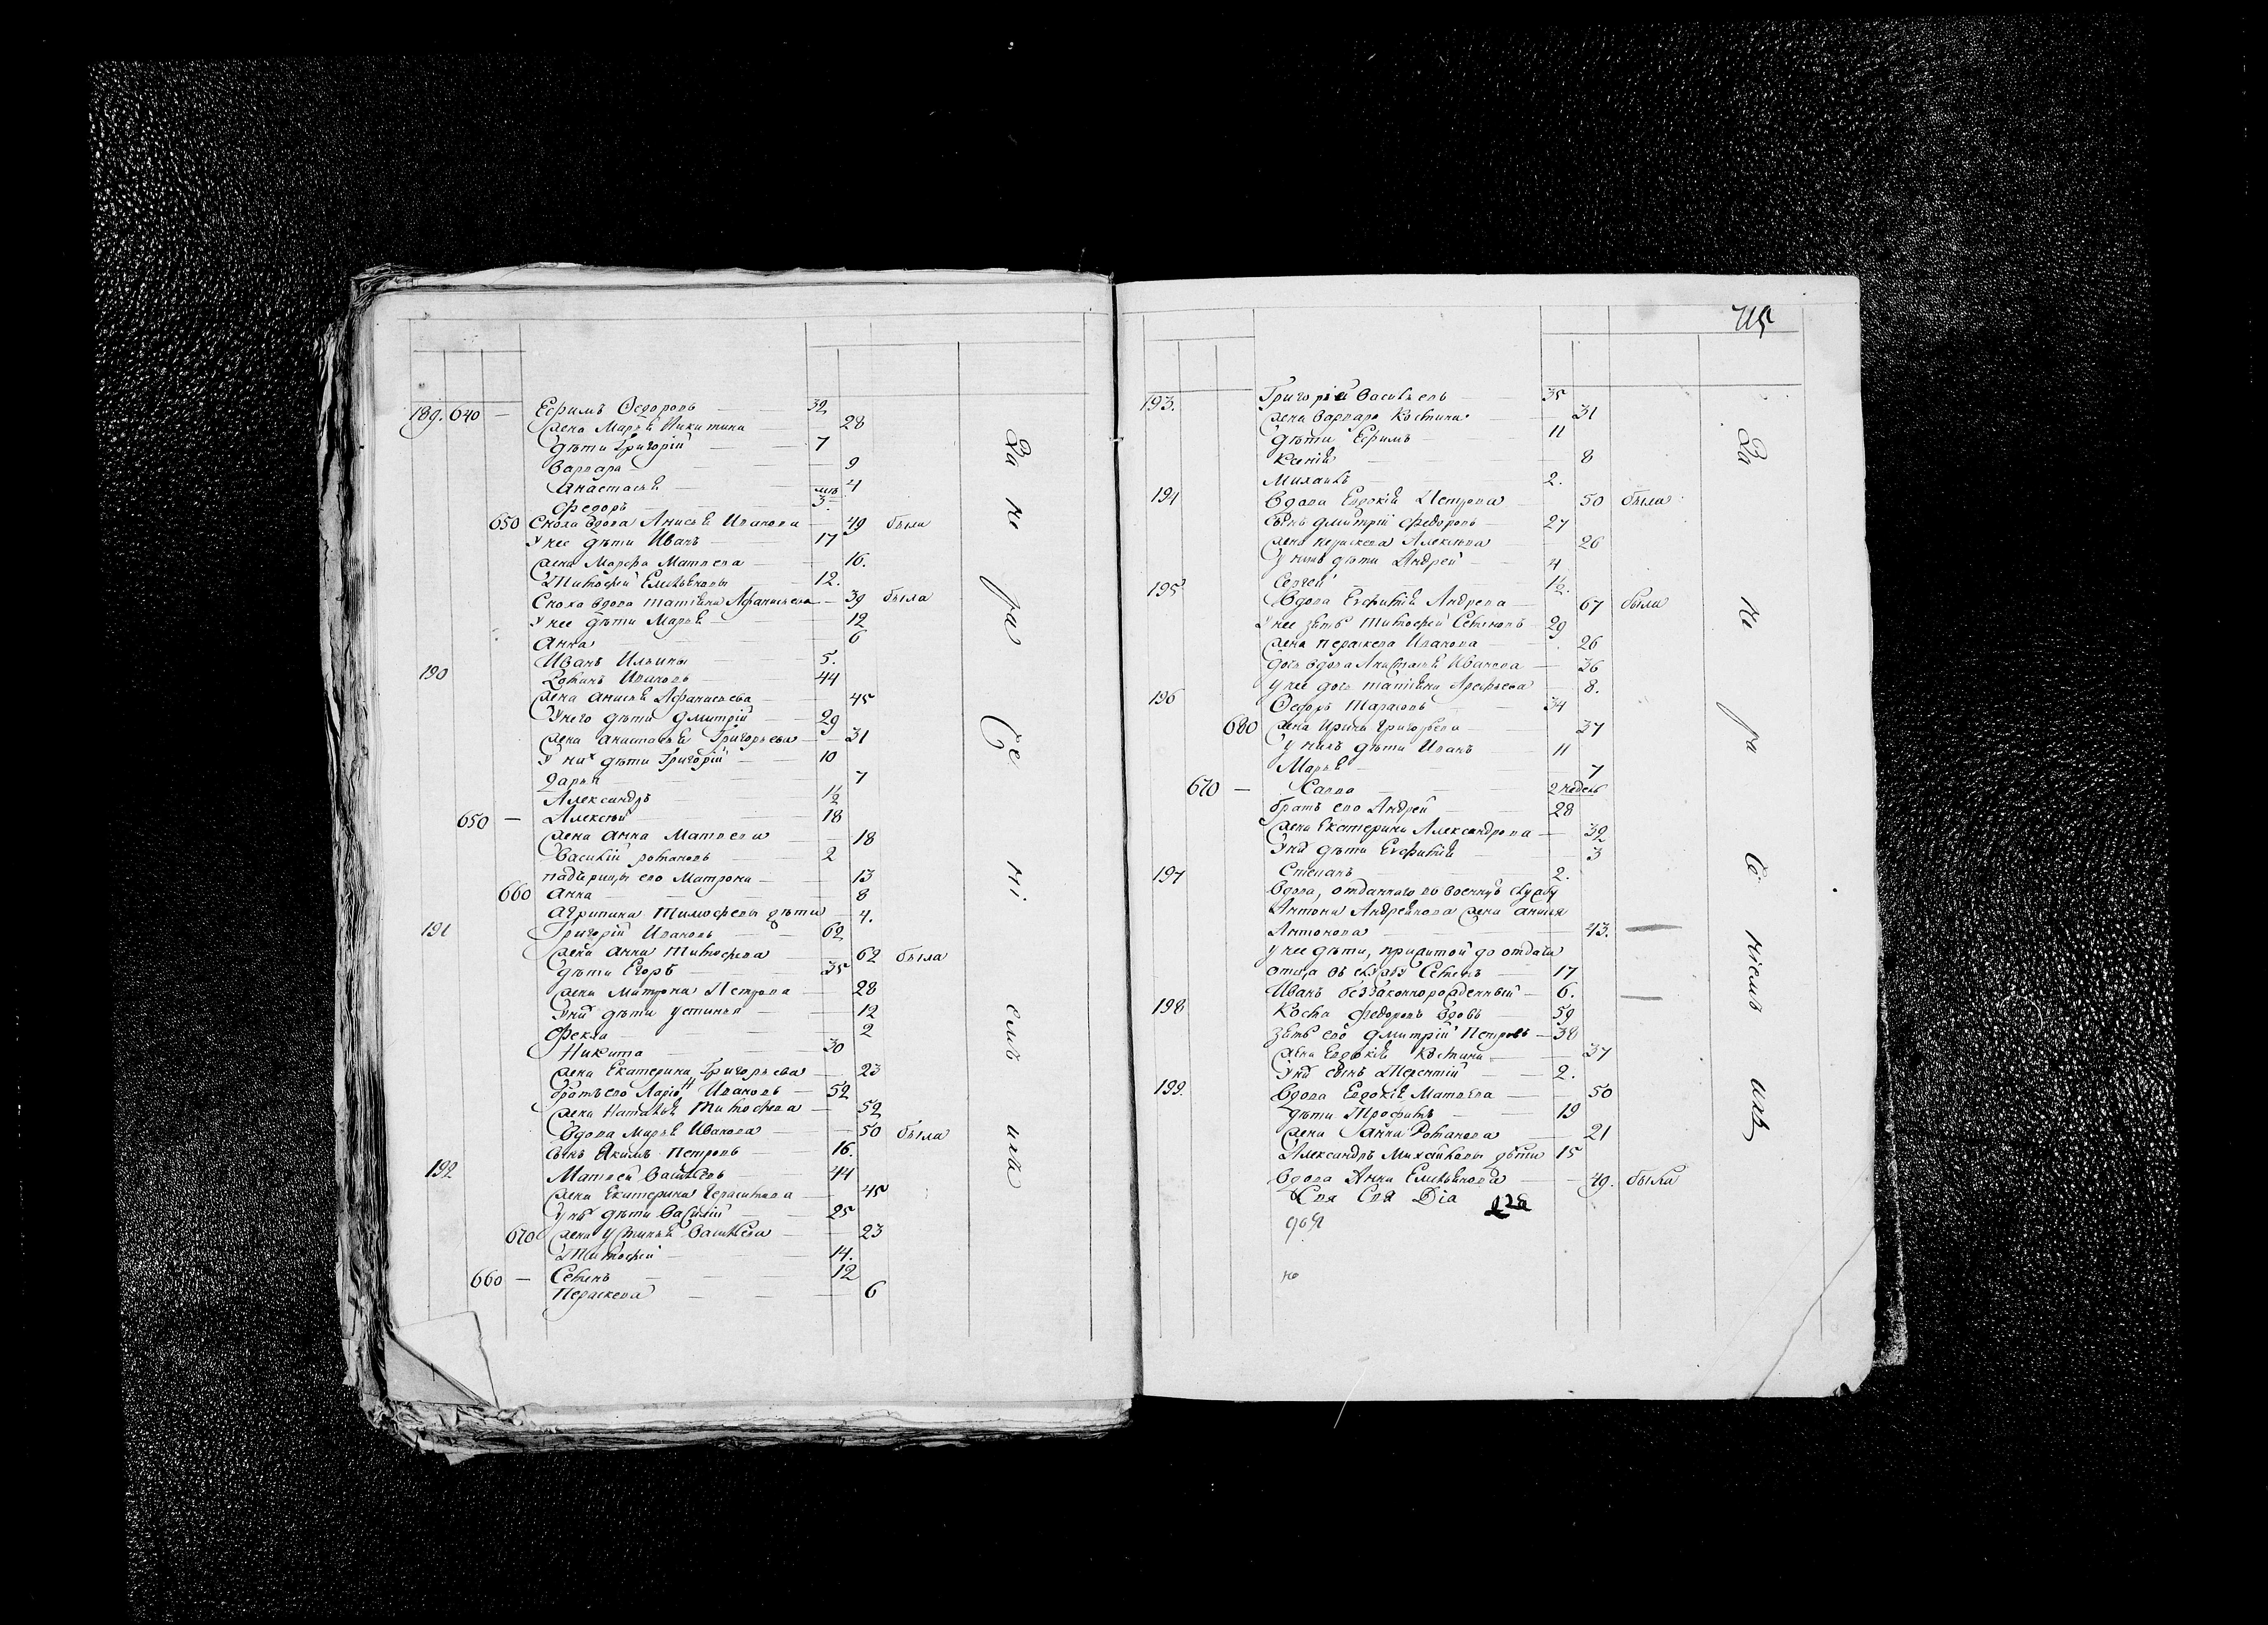 189. 640 — Ефимъ Ѳедоровъ — 32
жена Марья Никитина — 28
дѣти Григорій — 7
Варвара — 9
Анастасья — 4
Федоръ — 3
650 Сноха вдова Анисья Иванова — 49 была
У нее дѣти Иванъ — 17
жена Марфа Матвѣева — 16.
Тимофей Емельяновы — 12.
Сноха вдова Татіяна Афанасьева — 39 была
У нее дѣти Марья — 12
Анна — 6
Иванъ Ильины — 5.
190 Романъ Ивановъ — 44
жена Анисья Афанасьева — 45
У него дѣти Дмитрій — 29
жена Анастасья Григорьева — 31
У них дѣти Григорій — 10
Дарья — 7
Александръ — 1½
650 — Алексѣй — 18
жена Анна Матвеева — 18
Василій Романовъ — 2
падчерицы его Матрона — 13
660 Анна — 8
Агрипина Тимофеевы дѣти — 4.
191 Григорій Ивановъ — 62
жена Анна Тимофеева — 62 была
дѣти Егоръ — 35
жена Матрона Петрова — 28
У них дѣти Устинья — 12
Фекла — 2
Никита — 30
жена Екатерина Григорьева — 23
братъ его Ларіонъ Ивановъ — 52
жена Наталья Тимофеева — 52
Вдова Марья Иванова — 50 была
сынъ Якимъ Петровъ — 16.
192 Матвей Васильевъ — 44
жена Екатерина Герасимова — 45
У нихъ дѣти Василій — 25
670 жена Устинья Васильева — 23
Тимофей — 14.
660 — Семенъ — 12
Параскева — 6
За нерадениемъ ихъ
715
193. Григорій Васильевъ — 35
жена Варвара Костина — 31
дѣти Ефимъ — 11
Ксенія — 8
Михаилъ — 2.
194 Вдова Евдокія Петрова — 50 была
сынъ Дмитрій Федоровъ — 27
жена Параскева Алексѣева — 26
У нихъ дѣти Андрей — 4
Сергей — 1½.
195 Вдова Евфимія Андреева — 67 была
У нее зять Тимофей Семеновъ — 29
жена Параскева Иванова — 26
дочь вдова Анастасья Иванова — 36
у нее дочь Татіяна Арефьева — 8.
196 Ѳедоръ Тарасовъ — 34
680 жена Ирина Григорьева — 37
У нихъ дѣти Иванъ — 11
Марья — 7
670 — Савва — 2 недель
братъ его Андрей — 28
жена Екатерина Александрова — 32
У них дѣти Евфимія — 3
197 Степанъ — 2.
Вдова, отданнаго въ военную службу
Антона Андреянова жена Анисья
Антонова — 43. —
у нее дѣти, прижитой до отдачи
отца въ службу Семенъ — 17
Иванъ беззаконнорожденный — 6. —
198 Коста Федоровъ вдовъ — 59
зять его Дмитрій Петровъ — 38
жена Евдокія Костина — 37
У них сынъ Терентій — 2.
199. Вдова Евдокія Матвѣева — 50
дѣти Трофимъ — 19
жена Анна Романова — 21
Александръ Михайловы дѣти 15
Вдова Анна Емельянова — 49. была
но
За нерадениемъ ихъ